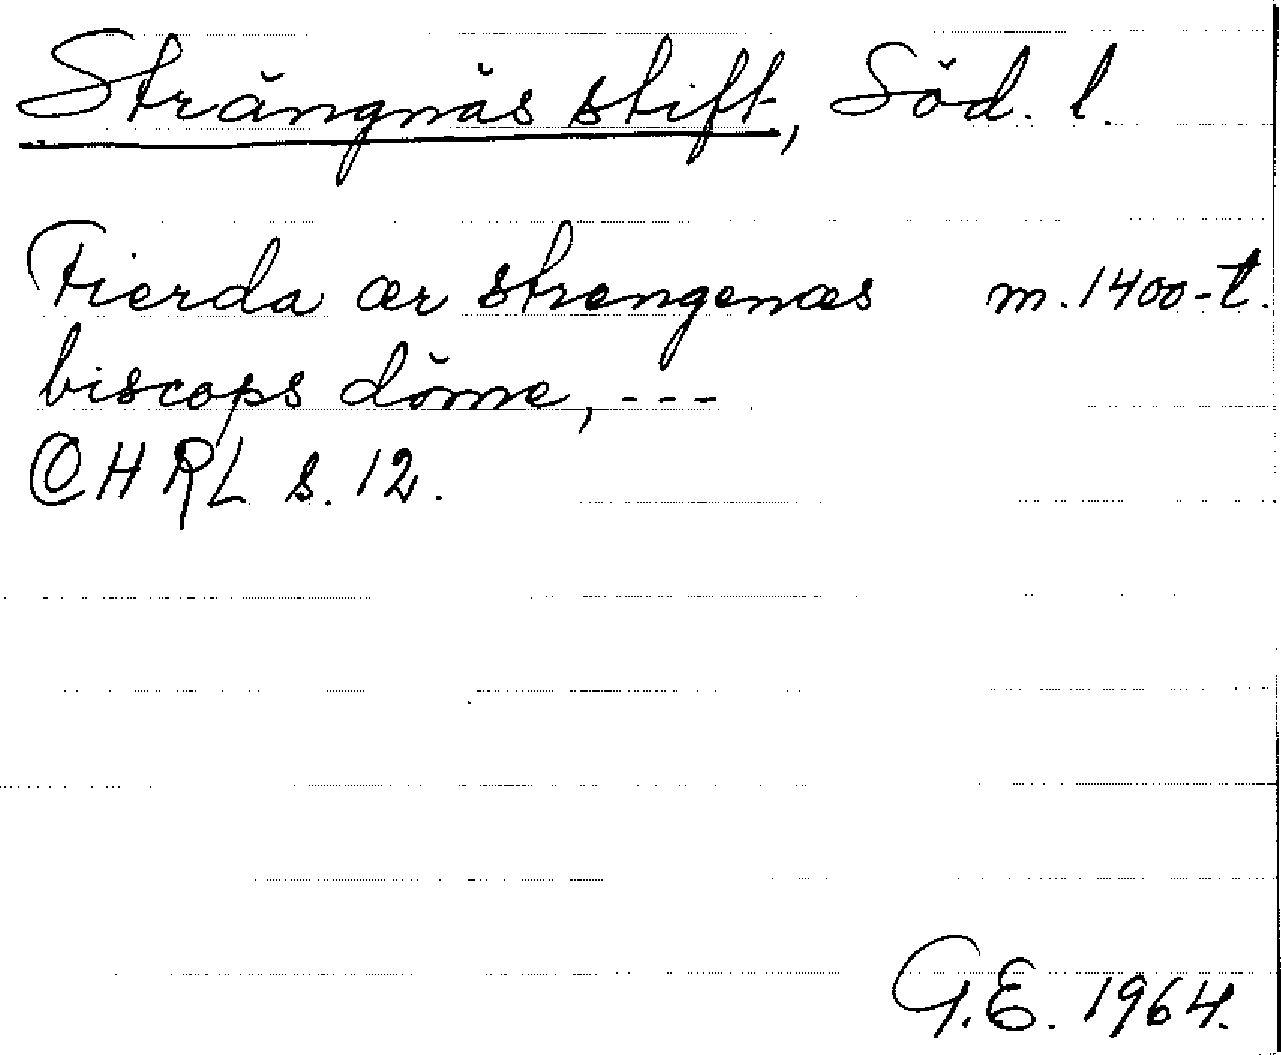 Strängnäs stift, Söd. l.
Fierda ær strengenæs m. 1400-t.
biscops döme, ---
CHRL s. 12.
G.E. 1964.